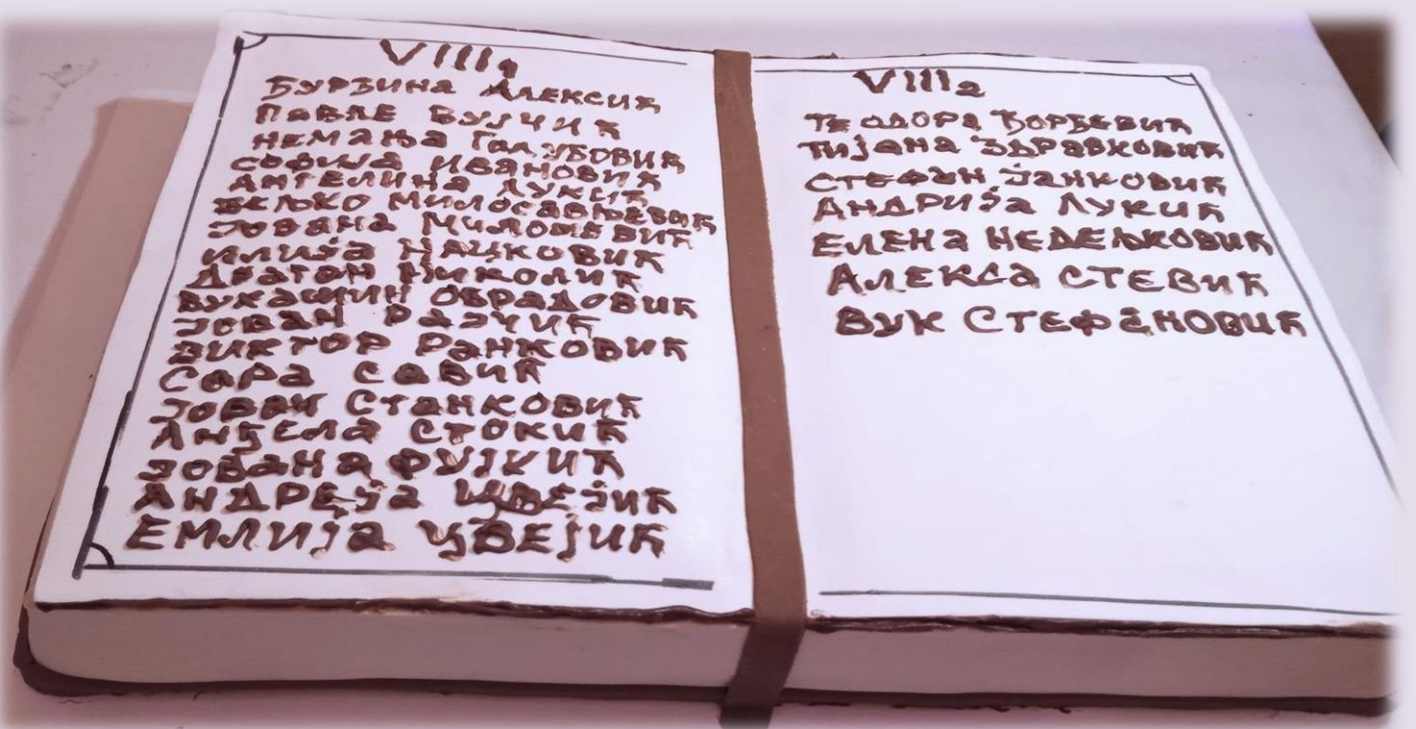 VIII₁
Ђурђина Алексић
Павле Вујчић
Немања Голубовић
Софија Ивановић
Ангелина Лукић
Вељко Милосављевић
Јована Милошевић
Илија Нацковић
Драган Николић
Вукашин Обрадовић
Јован Рајчић
Виктор Ранковић
Сара Савић
Јован Станковић
Анђела Стокић
Јована Фујкић
Андреја Цвејић
Емлија Цвејић
VIII₂
Теодора Ђорђевић
Тијана Здравковић
Стефан Јанковић
Андрија Лукић
Елена Недељковић
Алекса Стевић
Вук Стефановић